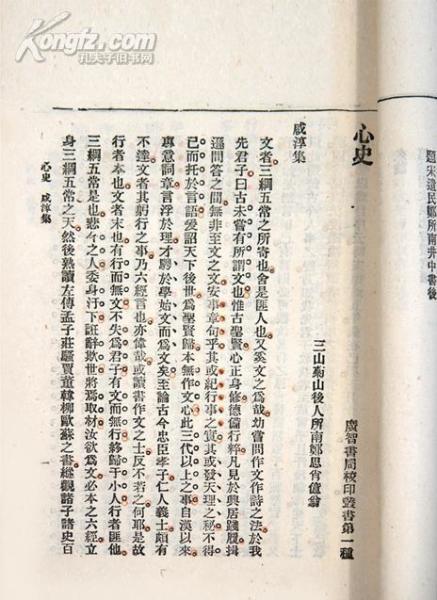 Kongfz.com
孔夫子旧书网
題宋遺民鄭所南井中書後
心史
廣智書局校印叢書第一種
三山菊山後人所南鄭思肖億翁
咸淳集
文者三綱五常之所寄也舍是匪人也又奚文之爲哉幼嘗問作文作詩之法於我
先君子曰古未嘗有所謂文也惟古聖賢心正身修德備行粹凡見於興居踐履揖
遜問答之間無非至文之文安事章句乎其或紀行事之實其或發天理之秘不得
已而托於言語爰詔天下後世爲聖賢歸本無作文心此三代以上之事自漢以來
專意詞章言浮於理才勝於學始文而爲文矣至論古今忠臣孝子仁人義士頗有
不達文者其躬行之事乃六經言也亦偉哉或讀書作文之士反不若之何耶是故
行者本也文者末也有行而無文不失爲君子有文而無行終歸于小人行者匪他
三綱五常是也悲今之人委身汙下誑辭欺世將焉取材汝欲爲文必本之六經立
身三綱五常之天然後熟讀左傳孟子莊騷賈董韓柳歐蘇之書縱觀諸子諸史百
心史 咸淳集